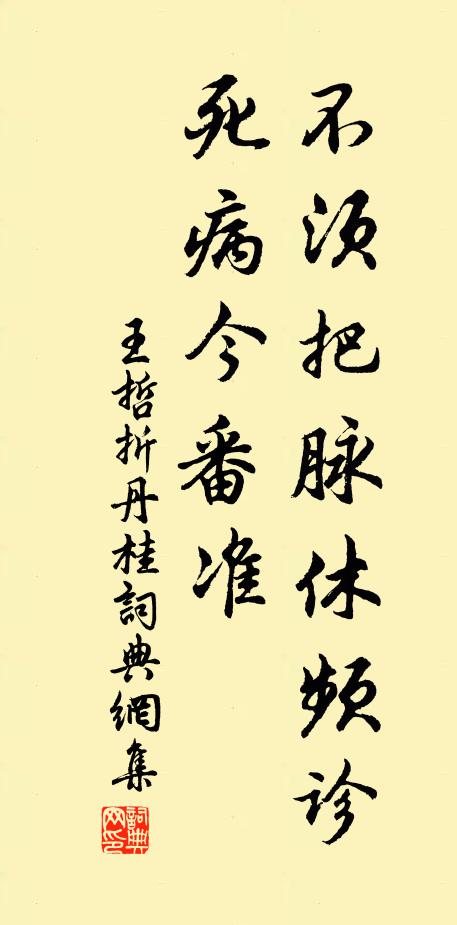 不須把脉休頻診
死病今番准
王哲折丹桂詞典網集
詞典網印